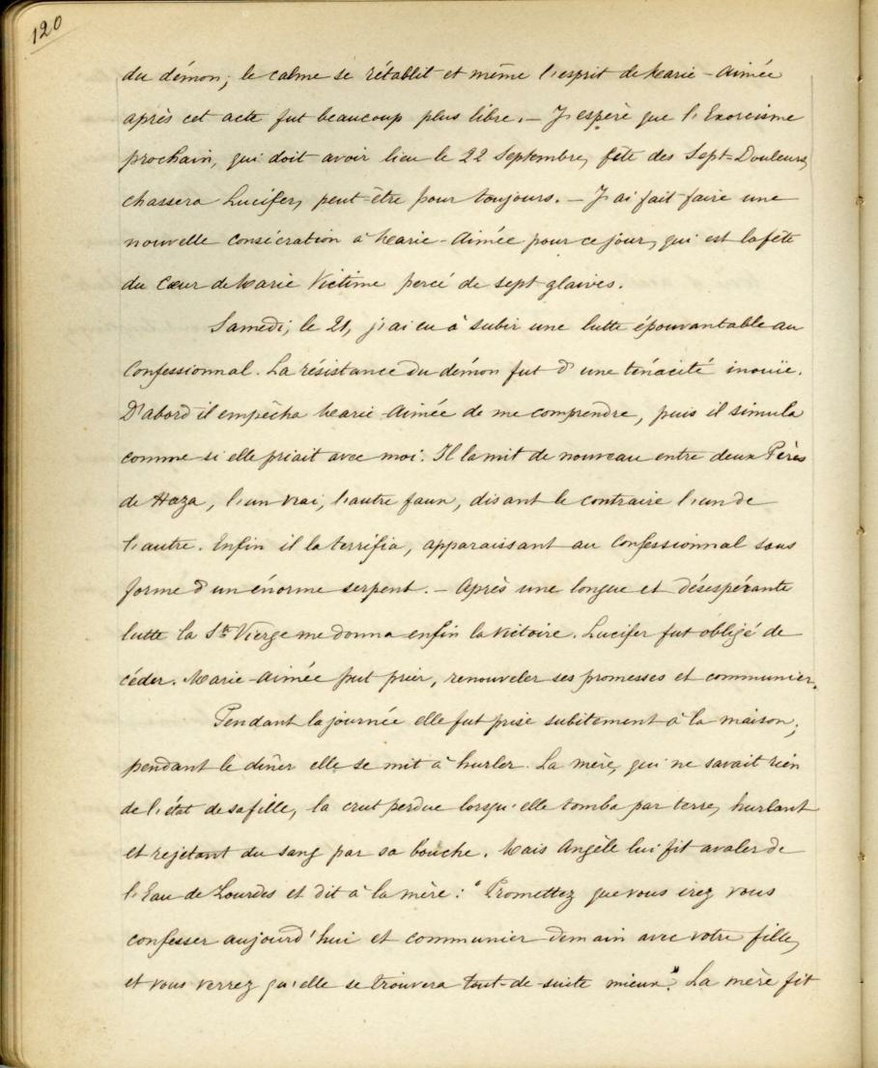 120
du démon; le calme se rétablit et même l'esprit de Marie-Aimée
après cet acte fut beaucoup plus libre. — J'espère que l'Exorcisme
prochain, qui doit avoir lieu le 22 Septembre, fête des Sept-Douleurs,
chassera Lucifer, peut-être pour toujours. — J'ai fait faire une
nouvelle consécration à Marie-Aimée pour ce jour, qui est la fête
du Cœur de Marie Victime percé de sept glaives.
Samedi, le 21, j'ai eu à subir une lutte épouvantable au
Confessionnal. La résistance du démon fut d'une ténacité inouïe.
D'abord il empêcha Marie-Aimée de me comprendre, puis il simula
comme si elle priait avec moi. Il la mit de nouveau entre deux Pères
de Haza, l'un vrai, l'autre faux, disant le contraire l'un de
l'autre. Enfin il la terrifia, apparaissant au Confessionnal sous
forme d'un énorme serpent. — Après une longue et désespérante
lutte la Ste Vierge me donna enfin la victoire. Lucifer fut obligé de
céder. Marie-Aimée put prier, renouveler ses promesses et communier.
Pendant la journée elle fut prise subitement à la maison;
pendant le dîner elle se mit à hurler. La mère, qui ne savait rien
de l'état de sa fille, la crut perdue lorsqu'elle tomba par terre, hurlant
et rejetant du sang par sa bouche. Mais Angèle lui fit avaler de
l'Eau de Lourdes et dit à la mère: "Promettez que vous irez vous
confesser aujourd'hui et communier demain avec votre fille,
et vous verrez qu'elle se trouvera tout-de-suite mieux." La mère fit